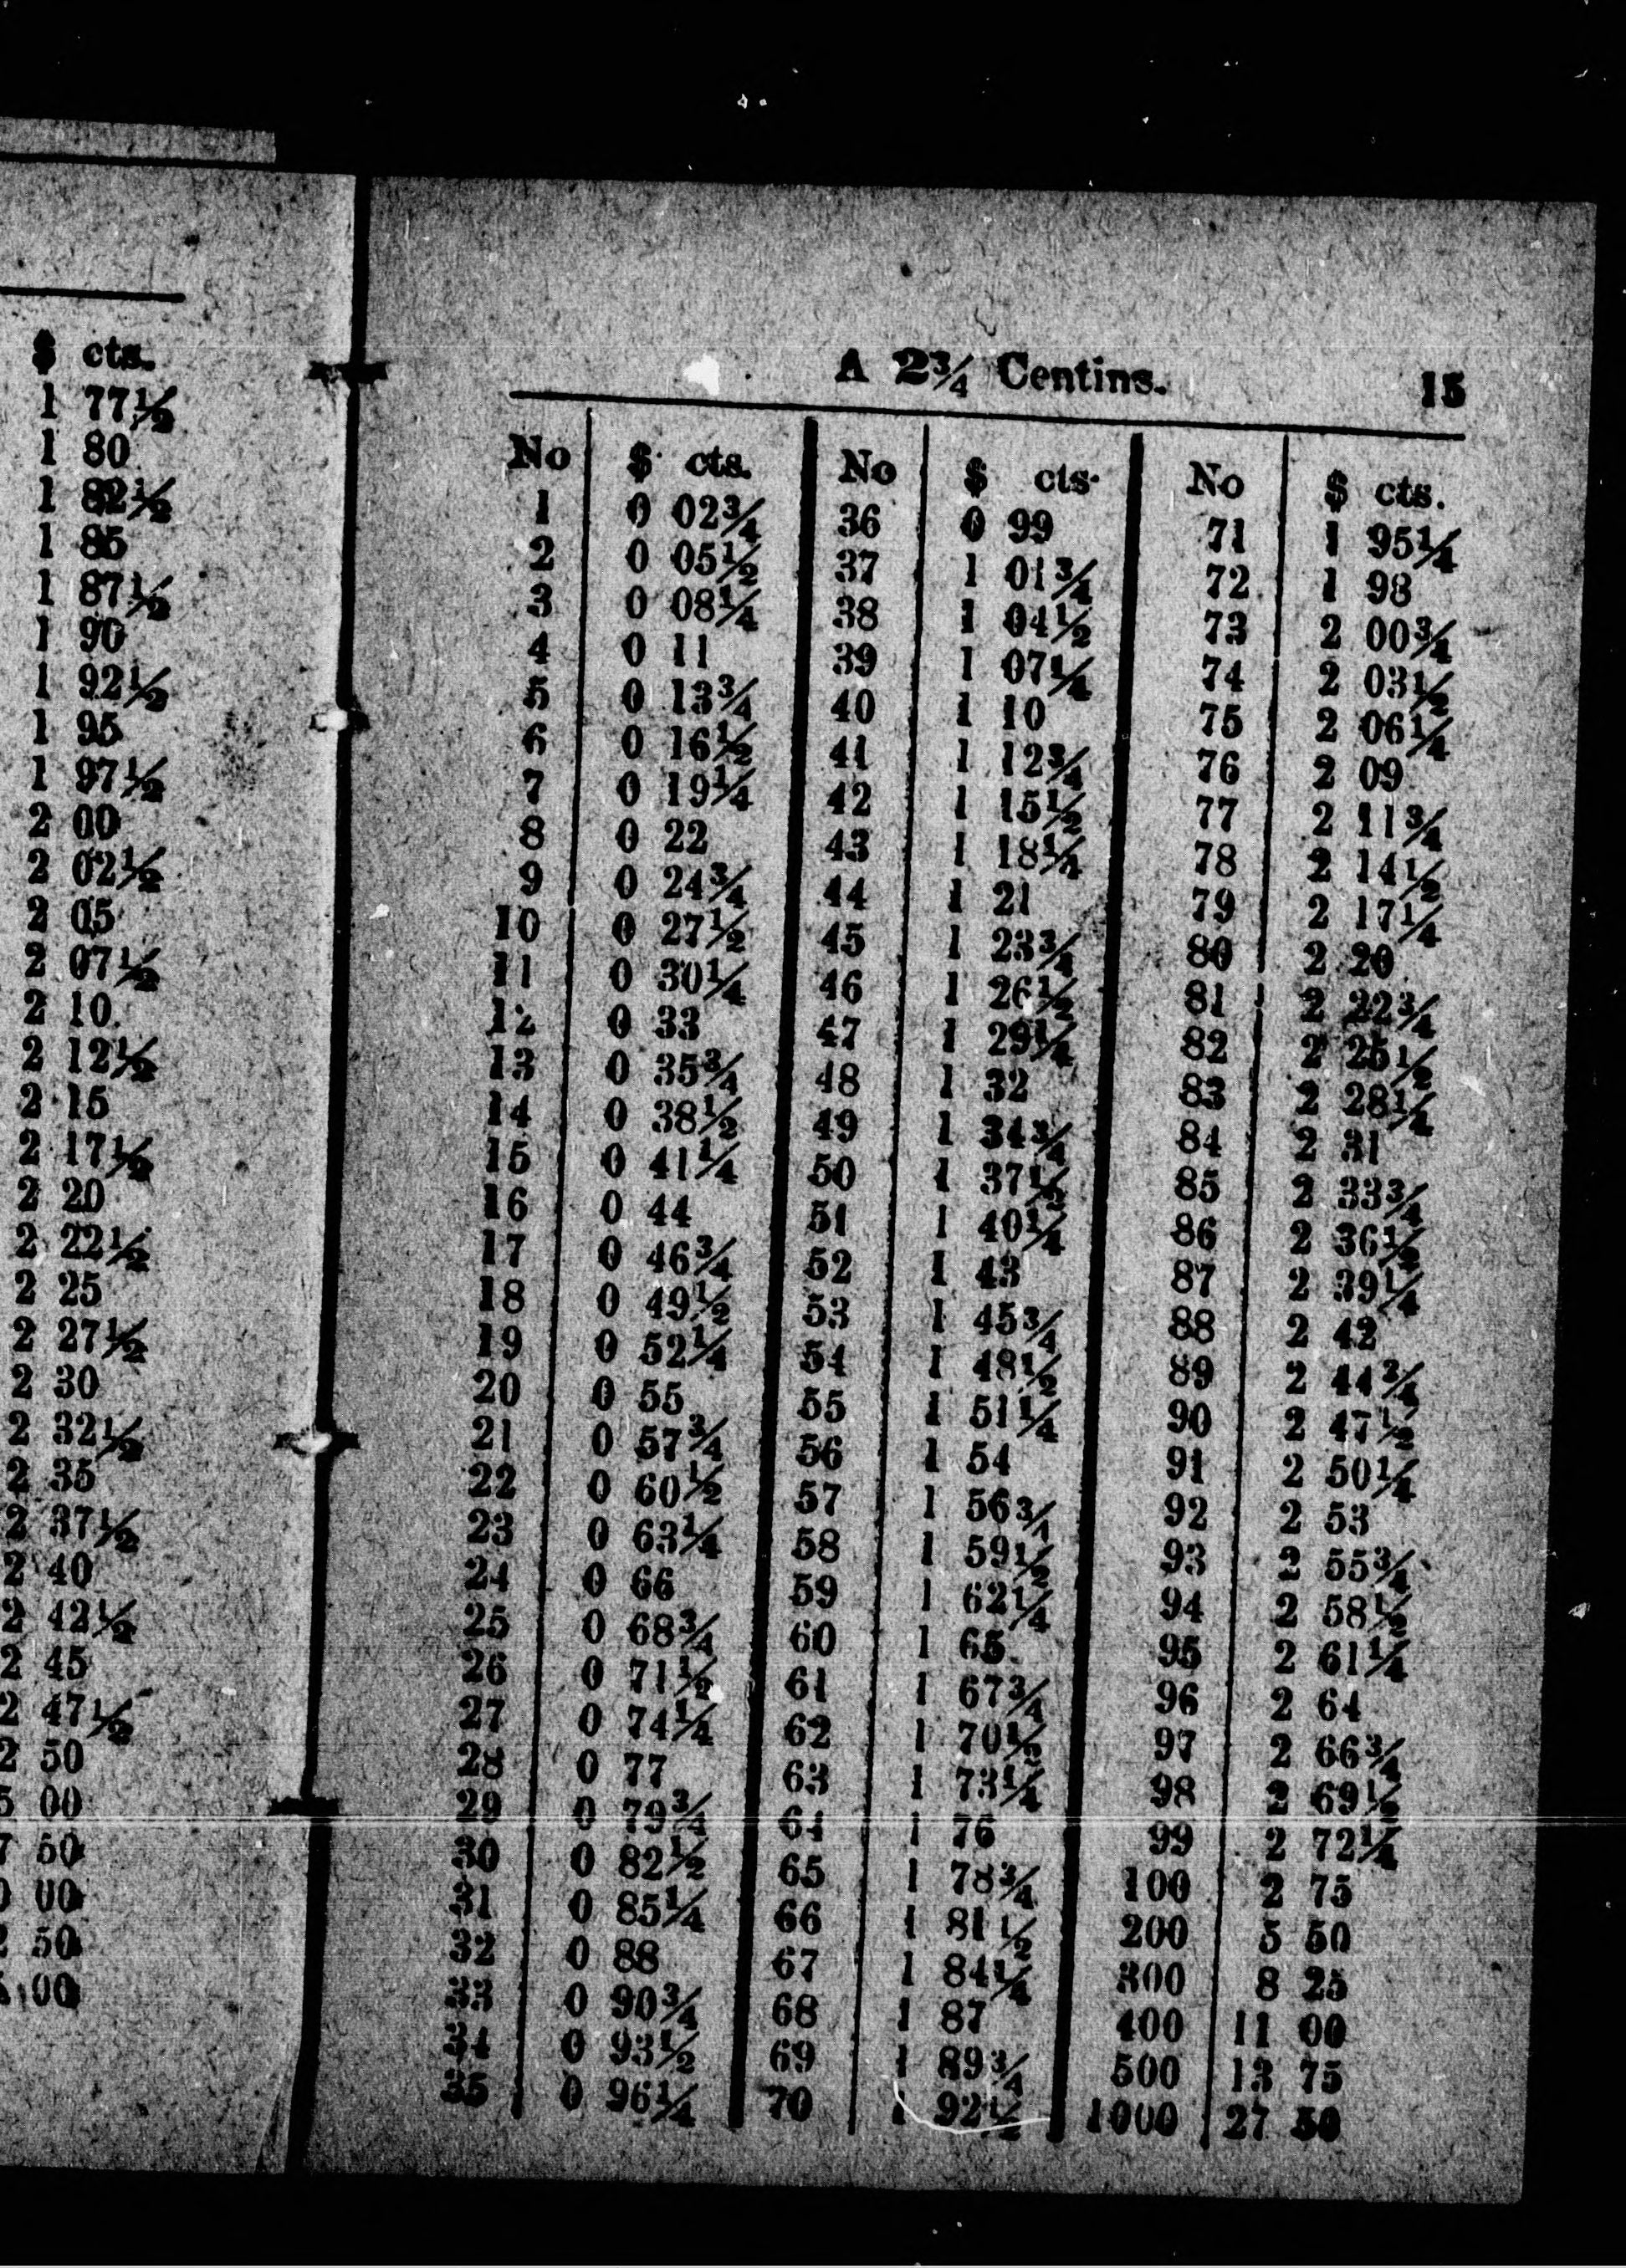 $ cts.
1 77½
1 80
1 82½
1 85
1 87½
1 90
1 92½
1 95
1 97½
2 00
2 02½
2 05
2 07½
2 10
2 12½
2 15
2 17½
2 20
2 22½
2 25
2 27½
2 30
2 32½
2 35
2 37½
2 40
2 42½
2 45
2 47½
2 50
5 00
7 50
00
50
00
A 2¾ Centins. 15
No $ cts. No $ cts. No $ cts.
1 0 02¾ 36 0 99 71 1 95¼
2 0 05½ 37 1 01¾ 72 1 98
3 0 08¼ 38 1 04½ 73 2 00¾
4 0 11 39 1 07¼ 74 2 03½
5 0 13¾ 40 1 10 75 2 06¼
6 0 16½ 41 1 12¾ 76 2 09
7 0 19¼ 42 1 15½ 77 2 11¾
8 0 22 43 1 18¼ 78 2 14½
9 0 24¾ 44 1 21 79 2 17¼
10 0 27½ 45 1 23¾ 80 2 20
11 0 30¼ 46 1 26½ 81 2 22¾
12 0 33 47 1 29¼ 82 2 25½
13 0 35¾ 48 1 32 83 2 28¼
14 0 38½ 49 1 34¾ 84 2 31
15 0 41¼ 50 1 37½ 85 2 33¾
16 0 44 51 1 40¼ 86 2 36½
17 0 46¾ 52 1 43 87 2 39¼
18 0 49½ 53 1 45¾ 88 2 42
19 0 52¼ 54 1 48½ 89 2 44¾
20 0 55 55 1 51¼ 90 2 47½
21 0 57¾ 56 1 54 91 2 50¼
22 0 60½ 57 1 56¾ 92 2 53
23 0 63¼ 58 1 59½ 93 2 55¾
24 0 66 59 1 62¼ 94 2 58½
25 0 68¾ 60 1 65 95 2 61¼
26 0 71½ 61 1 67¾ 96 2 64
27 0 74¼ 62 1 70½ 97 2 66¾
28 0 77 63 1 73¼ 98 2 69½
29 0 79¾ 64 1 76 99 2 72¼
30 0 82½ 65 1 78¾ 100 2 75
31 0 85¼ 66 1 81½ 200 5 50
32 0 88 67 1 84¼ 300 8 25
33 0 90¾ 68 1 87 400 11 00
34 0 93½ 69 1 89¾ 500 13 75
35 0 96¼ 70 1 92½ 1000 27 50